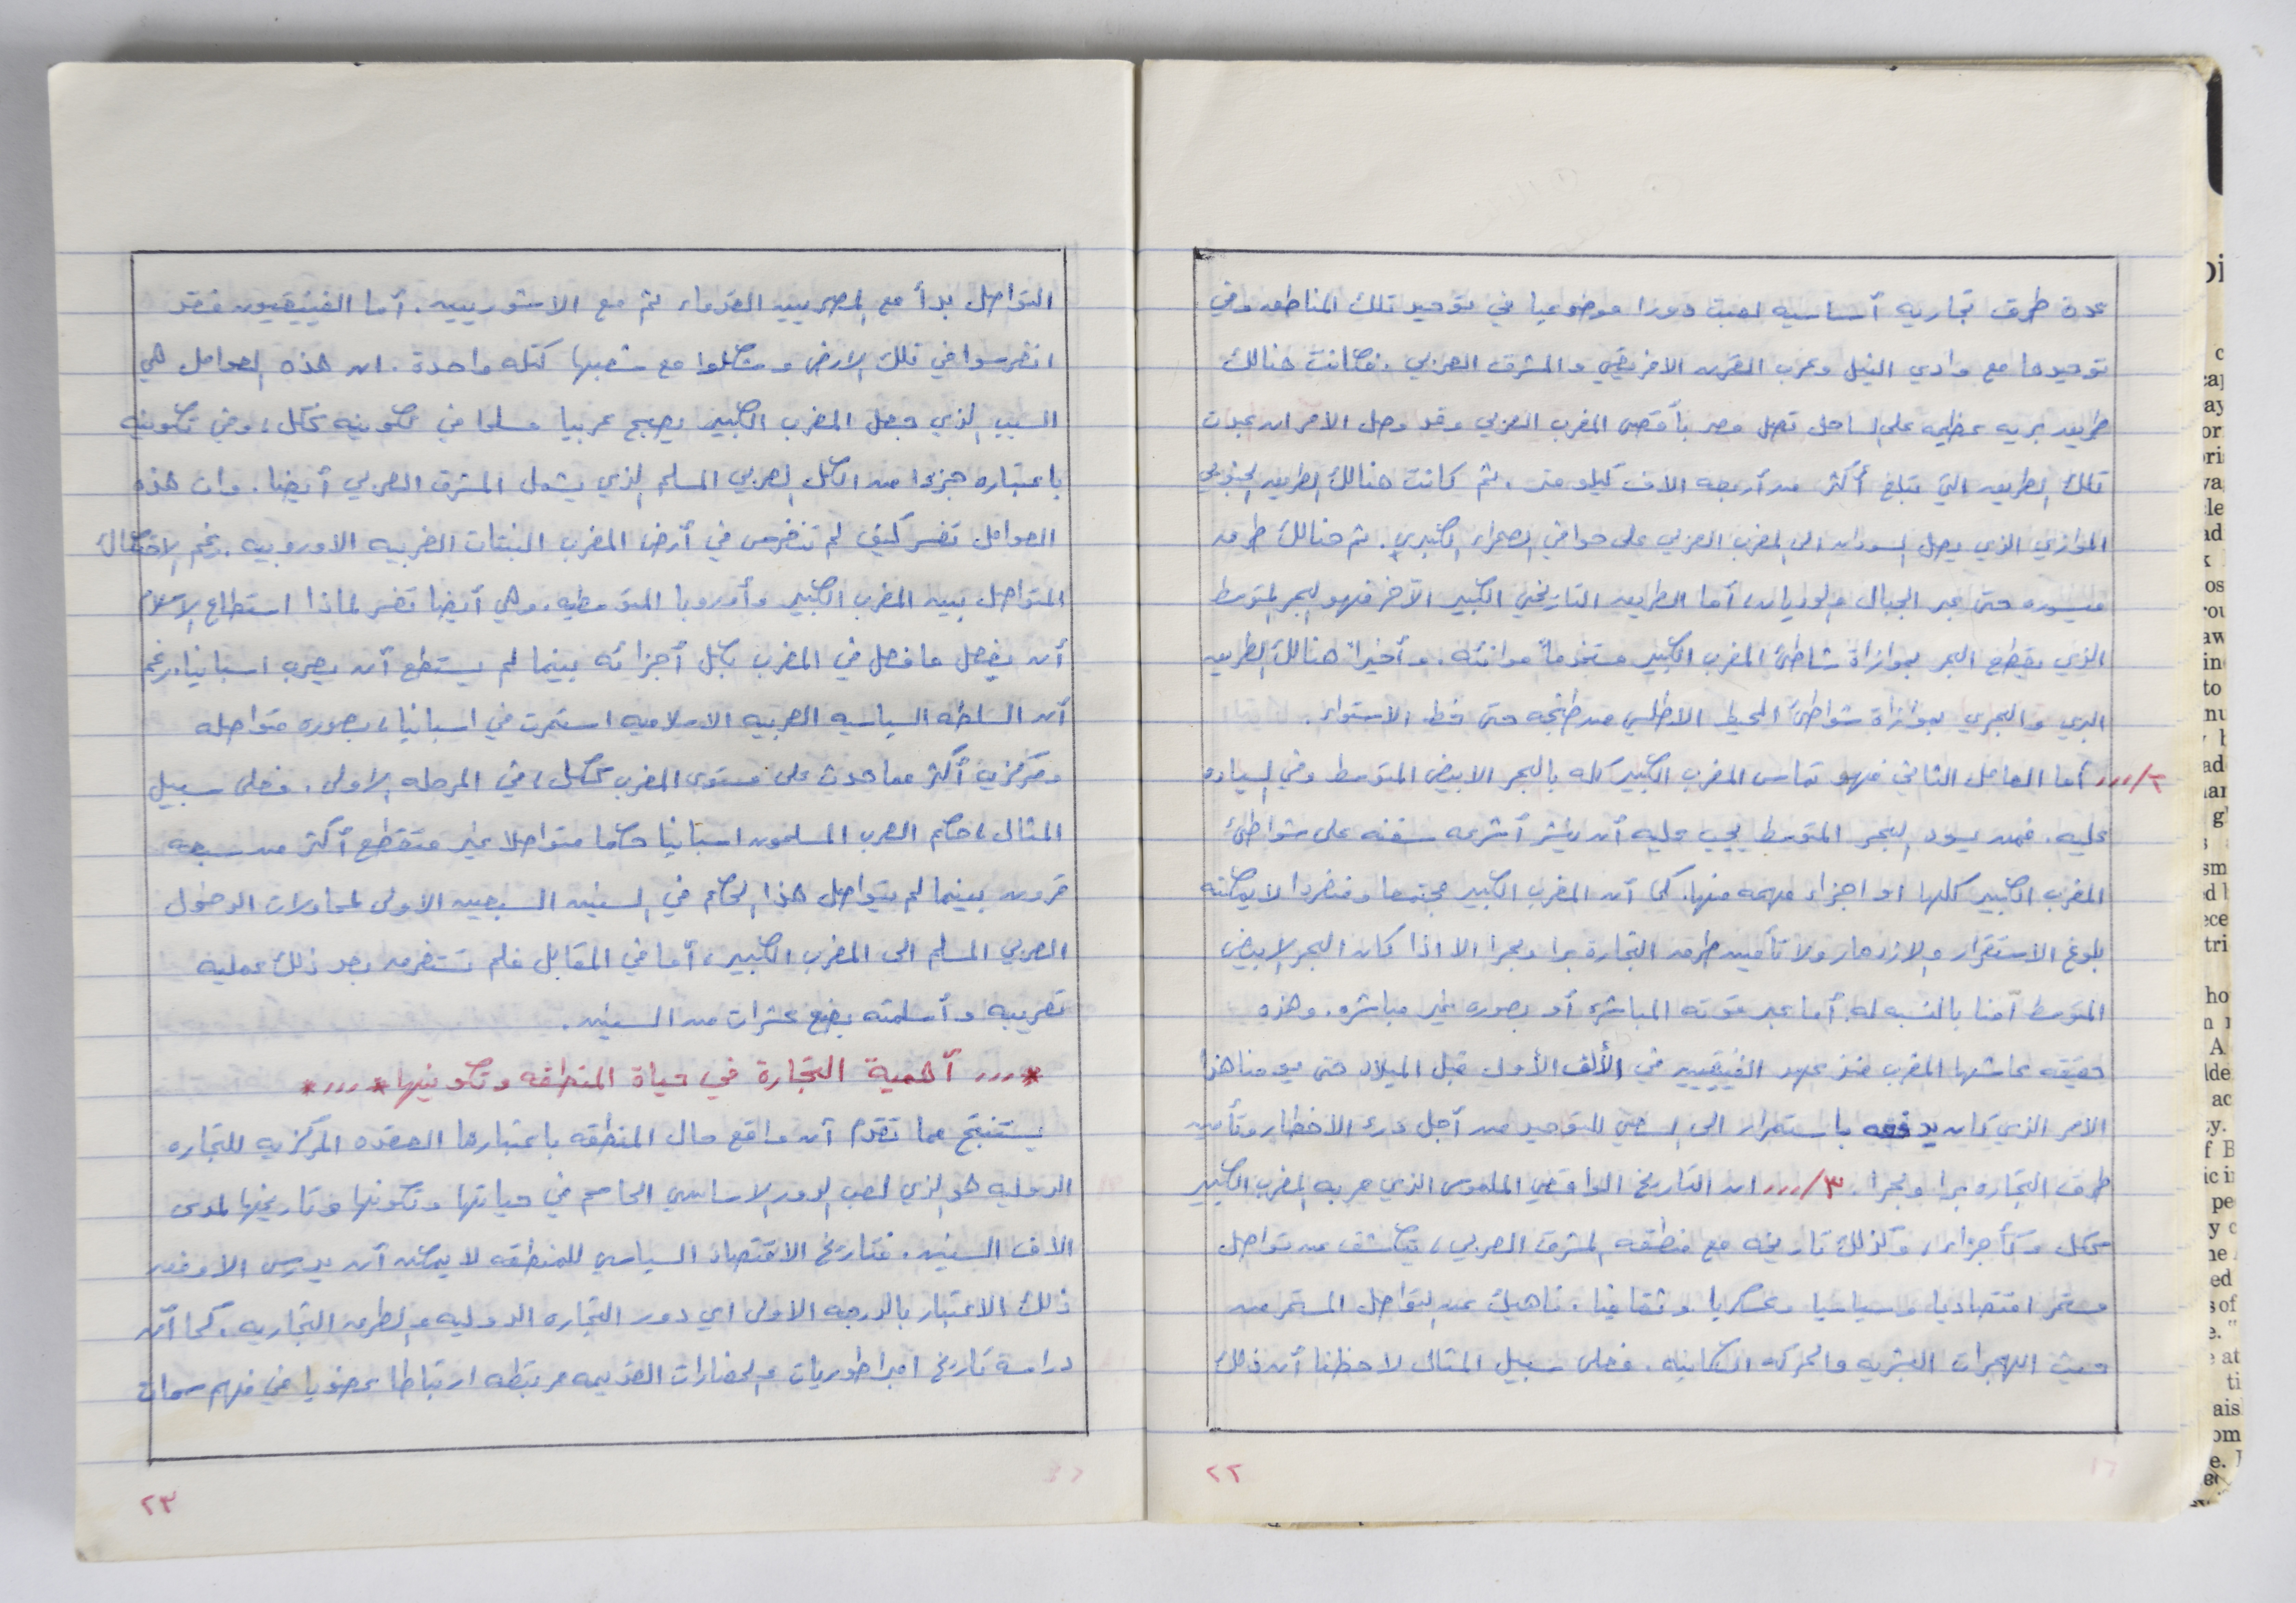 عدة طرق تجاريه أساسيه لعبت دورا موضوعيا في توحيد تلك المناطق وفي
توحيدها مع وادي النيل وعرب القرن الافريقي والمشرق العربي. فكانت هنالك
طريق بريه عظيمه على الساحل تصل مصر بأقصى المغرب العربي وقد وصل الامر ان عبدت
تلك الطريق التي تبلغ أكثر من أربعه الاف كيلو متر. ثم كانت هنالك الطريق الجنوبي
الموازي الذي يصل السودان الى المغرب العربي على حوافي الصحراء الكبرى. ثم هنالك طرق
ميسوره حتى عبر الجبال والوديان، أما الطريق التاريخي الكبير الآخر فهو البحر المتوسط
الذي يقطع البحر بموازاة شاطئ المغرب الكبير مستخدماً موانئه. وأخيراً هنالك الطريق
البري والبحري بموازاة شواطئ المحيط الاطلسي من طنجه حتى خط الاستواء.
٢/،،، أما العامل الثاني فهو تماس المغرب الكبير كله بالبحر الابيض المتوسط وفي السياده
عليه. فمن يسود البحر المتوسط يجب عليه أن ينشر أشرعه سفنه على شواطئ
المغرب الكبير كلها او اجزاء مهمه منها. كما أن المغرب الكبير مجتمعا ومنفردا لا يمكنه
بلوغ الاستقرار والازدهار ولا تأمين طرق التجارة برا وبحرا الا اذا كان البحر الابيض
المتوسط آمنا بالنسبه له. أما عبر قوته المباشره أو بصوره غير مباشره. وهذه
حقيقه عاشها المغرب منذ عهد الفينيقيين في الألف الأول قبل الميلاد حتى يومنا هذا
الامر الذي كان يدفعه باستمرار الى السعي للتوحيد من أجل درء الاخطار وتأمين
طرق التجاره برا وبحرا. ٣/،،، ان التاريخ الواقعي الملموس الذي مر به المغرب الكبير
ككل وكأجزاء، وكذلك تاريخه مع منطقه المشرق العربي، يكشف عن تواصل
مستمر اقتصاديا وسياسيا وعسكريا وثقافيا. ناهيك عن التواصل المستمر من
حيث الهجرات البشريه والحركه السكانيه. فعلى سبيل المثال لاحظنا أن ذلك
٢٢
التواصل بدأ مع المصريين القدماء ثم مع الاشوريين. أما الفينيقيون فقد
انغرسوا في تلك الارض وشكلوا مع شعبها كتله واحدة. ان هذه العوامل هي
السبب الذي جعل المغرب الكبير يصبح عربيا مسلما في تكوينه ككل، وفي تكوينه
باعتباره جزءا من الكل العربي المسلم الذي يشمل المشرق العربي أيضا. وان هذه
العوامل تفسر كيف لم تنغرس في أرض المغرب النبتات الغربيه الاوروبيه. رغم الاحتكاك
المتواصل بين المغرب الكبير وأوروبا المتوسطيه، وهي أيضا تفسر لماذا استطاع الاسلام
أن يفعل ما فعل في المغرب بكل أجزائه بينما لم يستطع أن يعرب اسبانيا. رغم
أن السلطه السياسيه العربيه الاسلاميه استمرت في اسبانيا، بصوره متواصله
ومركزيه أكثر مما حدث على مستوى المغرب ككل، في المرحله الاولى. فعلى سبيل
المثال، حكم العرب المسلمون اسبانيا حكما متواصلا غير متقطع أكثر من سبعه
قرون بينما لم يتواصل هذا الحكم في السنين السبعين الاولى لمحاولات الدخول
العربي المسلم الى المغرب الكبير، أما في المقابل فلم تستغرق بعد ذلك عمليه
تعريبه وأسلمته بضع عشرات من السنين.
*،،،، أهمية التجارة في حياة المنطقه وتكوينها *،،،،*
يستنتج مما تقدم أن واقع حال المنطقه باعتبارها العقده المركزيه للتجاره
الدوليه هو الذي لعب الدور الاساسي الحاسم في حياتها وتكونها وتاريخها لمدى
الاف السنين. فتاريخ الاقتصاد السياسي للمنطقه لا يمكن أن يدرس الا وفق
ذلك الاعتبار بالدرجه الاولى اي دور التجاره الدوليه والطرق التجاريه. كما أن
دراسة تاريخ امبراطوريات والحضارات القديمه مرتبطه ارتباطا عضويا في فهم سمات
٢٣